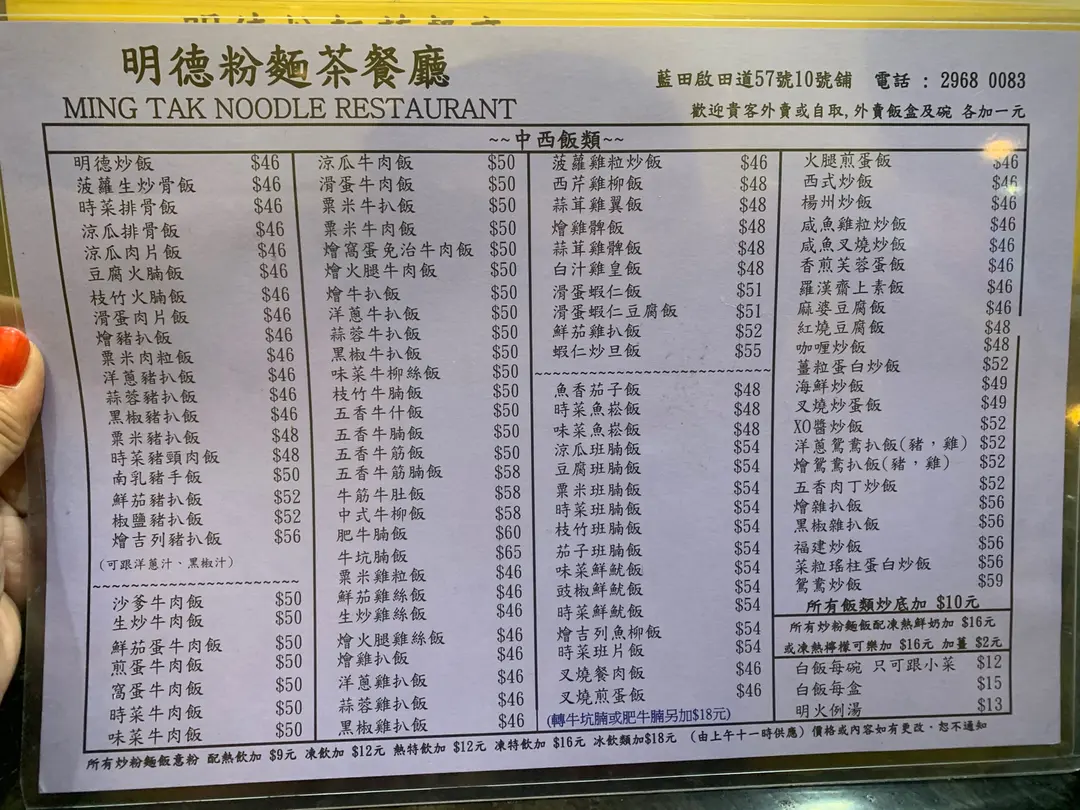 明德粉麵茶餐廳
MING TAK NOODLE RESTAURANT
藍田啟田道57號10號舖 電話 : 2968 0083
歡迎貴客外賣或自取, 外賣飯盒及碗 各加一元
~~中西飯類~~
明德炒飯 $46
菠蘿生炒骨飯 $46
時菜排骨飯 $46
涼瓜排骨飯 $46
涼瓜肉片飯 $46
豆腐火腩飯 $46
枝竹火腩飯 $46
滑蛋肉片飯 $46
燴豬扒飯 $46
粟米肉粒飯 $46
洋蔥豬扒飯 $46
蒜蓉豬扒飯 $46
黑椒豬扒飯 $46
粟米豬扒飯 $48
時菜豬頸肉飯 $48
南乳豬手飯 $50
鮮茄豬扒飯 $52
椒鹽豬扒飯 $52
燴吉列豬扒飯 $56
(可跟洋蔥汁、黑椒汁)
沙爹牛肉飯 $50
生炒牛肉飯 $50
鮮茄蛋牛肉飯 $50
煎蛋牛肉飯 $50
窩蛋牛肉飯 $50
時菜牛肉飯 $50
味菜牛肉飯 $50
涼瓜牛肉飯 $50
滑蛋牛肉飯 $50
粟米牛扒飯 $50
粟米牛肉飯 $50
燴窩蛋免治牛肉飯 $50
燴火腿牛肉飯 $50
燴牛扒飯 $50
洋蔥牛扒飯 $50
蒜蓉牛扒飯 $50
黑椒牛扒飯 $50
味菜牛柳絲飯 $50
枝竹牛腩飯 $50
五香牛什飯 $50
五香牛腩飯 $50
五香牛筋飯 $50
五香牛筋腩飯 $58
牛筋牛肚飯 $58
中式牛柳飯 $58
肥牛腩飯 $60
牛坑腩飯 $65
粟米雞粒飯 $46
鮮茄雞絲飯 $46
生炒雞絲飯 $46
燴火腿雞絲飯 $46
燴雞扒飯 $46
洋蔥雞扒飯 $46
蒜蓉雞扒飯 $46
黑椒雞扒飯 $46
菠蘿雞粒炒飯 $46
西芹雞柳飯 $48
蒜茸雞翼飯 $48
燴雞髀飯 $48
蒜茸雞髀飯 $48
白汁雞皇飯 $48
滑蛋蝦仁飯 $51
滑蛋蝦仁豆腐飯 $51
鮮茄雞扒飯 $52
蝦仁炒旦飯 $55
魚香茄子飯 $48
時菜魚崧飯 $48
味菜魚崧飯 $48
涼瓜班腩飯 $54
豆腐班腩飯 $54
粟米班腩飯 $54
時菜班腩飯 $54
枝竹班腩飯 $54
茄子班腩飯 $54
味菜鮮魷飯 $54
豉椒鮮魷飯 $54
時菜鮮魷飯 $54
燴吉列魚柳飯 $54
時菜班片飯 $54
叉燒餐肉飯 $46
叉燒煎蛋飯 $46
(轉牛坑腩或肥牛腩另加$18元)
火腿煎蛋飯 $46
西式炒飯 $46
楊州炒飯 $46
咸魚雞粒炒飯 $46
咸魚叉燒炒飯 $46
香煎芙蓉蛋飯 $46
羅漢齋上素飯 $46
麻婆豆腐飯 $46
紅燒豆腐飯 $48
咖喱炒飯 $48
薑粒蛋白炒飯 $52
海鮮炒飯 $49
叉燒炒蛋飯 $49
XO醬炒飯 $52
洋蔥鴛鴦扒飯(豬，雞) $52
燴鴛鴦扒飯(豬，雞) $52
五香肉丁炒飯 $52
燴雜扒飯 $56
黑椒雜扒飯 $56
福建炒飯 $56
菜粒瑤柱蛋白炒飯 $56
鴛鴦炒飯 $59
所有飯類炒底加 $10元
所有炒粉麵飯配凍熱鮮奶加 $16元
或凍熱檸檬可樂加 $16元 加薑 $2元
白飯每碗 只可跟小菜 $12
白飯每盒 $15
明火例湯 $13
所有炒粉麵飯意粉 配熱飲加 $9元 凍飲加 $12元 熱特飲加 $12元 凍特飲加 $16元 冰飲類加$18元 (由上午十一時供應) 價格或內容如有更改‧恕不通知